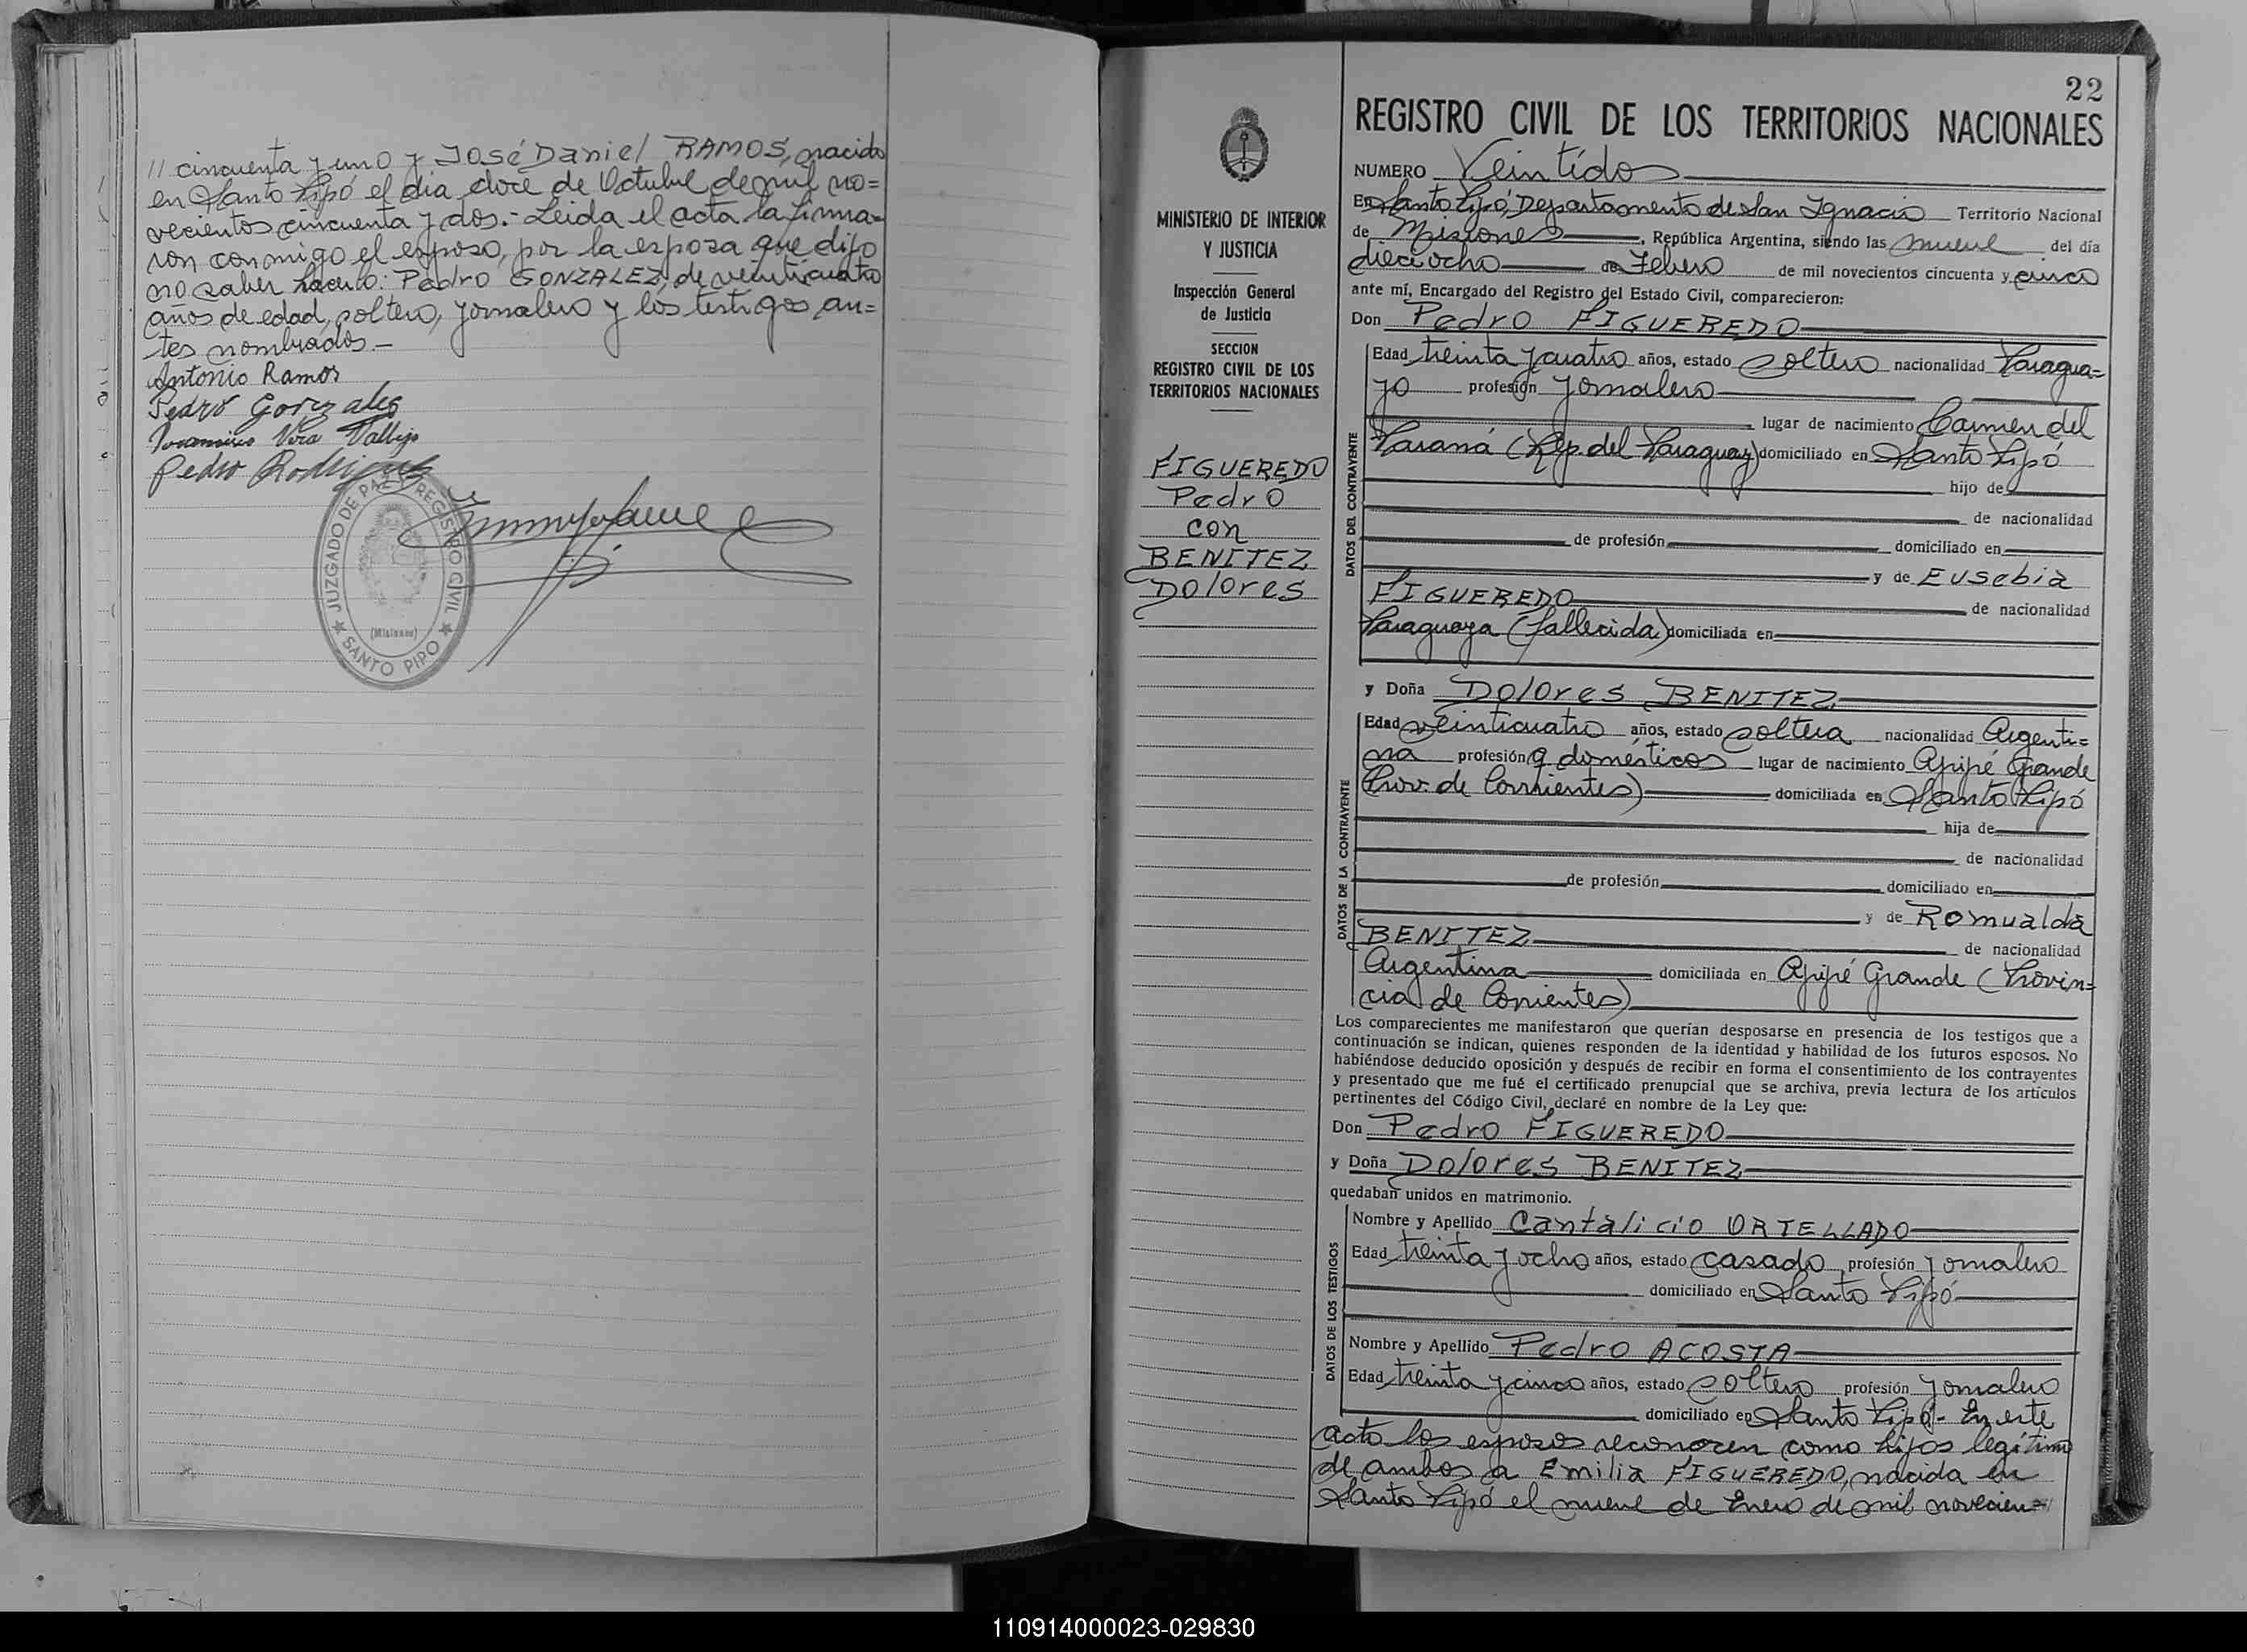 // cincuenta y uno y José Daniel RAMOS, nacido
en Santo Pipó el día doce de Octubre de mil no=
vecientos cincuenta y dos.- Leída el acta la firma=
ron conmigo el esposo, por la esposa que dijo
no saber hacerlo: Pedro GONZALEZ, de veinticuatro
años de edad, soltero, jornalero y los testigos an=
tes nombrados.-
Antonio Ramos
Pedro Gonzales
Vera Vallejo
Pedro Rodriguez
JUZGADO DE PAZ Y REGISTRO CIVIL
(Misiones)
SANTO PIPO
22
MINISTERIO DE INTERIOR
Y JUSTICIA
Inspección General
de Justicia
SECCION
REGISTRO CIVIL DE LOS
TERRITORIOS NACIONALES
FIGUEREDO
Pedro
con
BENITEZ
Dolores
REGISTRO CIVIL DE LOS TERRITORIOS NACIONALES
NUMERO Veintidos
En Santo Pipó, Departamento de San Ignacio Territorio Nacional
de Misiones, República Argentina, siendo las nueve del día
dieciocho de Febrero de mil novecientos cincuenta y cinco
ante mí, Encargado del Registro del Estado Civil, comparecieron:
Don Pedro FIGUEREDO
DATOS DEL CONTRAYENTE
Edad treinta y cuatro años, estado soltero nacionalidad Paragua=
yo profesión jornalero
lugar de nacimiento Carmen del
Paraná (Rep. del Paraguay) domiciliado en Santo Pipó
hijo de
de nacionalidad
de profesión domiciliado en
y de Eusebia
FIGUEREDO de nacionalidad
Paraguaya (fallecida) domiciliada en
y Doña Dolores BENITEZ
DATOS DE LA CONTRAYENTE
Edad veinticuatro años, estado soltera nacionalidad Argenti=
na profesión q. domésticos lugar de nacimiento Apipé Grande
(Prov. de Corrientes) domiciliada en Santo Pipó
hija de
de nacionalidad
de profesión domiciliado en
y de Romualda
BENITEZ de nacionalidad
Argentina domiciliada en Apipé Grande (Provin=
cia de Corrientes)
Los comparecientes me manifestaron que querían desposarse en presencia de los testigos que a
continuación se indican, quienes responden de la identidad y habilidad de los futuros esposos. No
habiéndose deducido oposición y después de recibir en forma el consentimiento de los contrayentes
y presentado que me fué el certificado prenupcial que se archiva, previa lectura de los artículos
pertinentes del Código Civil, declaré en nombre de la Ley que:
Don Pedro FIGUEREDO
y Doña Dolores BENITEZ
quedaban unidos en matrimonio.
DATOS DE LOS TESTIGOS
Nombre y Apellido Cantalicio ORTELLADO
Edad treinta y ocho años, estado casado profesión jornalero
domiciliado en Santo Pipó
Nombre y Apellido Pedro ACOSTA
Edad treinta y cinco años, estado soltero profesión jornalero
domiciliado en Santo Pipó.- En este
acto los esposos reconocen como hijos legítimos
de ambos a Emilia FIGUEREDO, nacida en
Santo Pipó el nueve de Enero de mil novecien=//
110914000023-029830